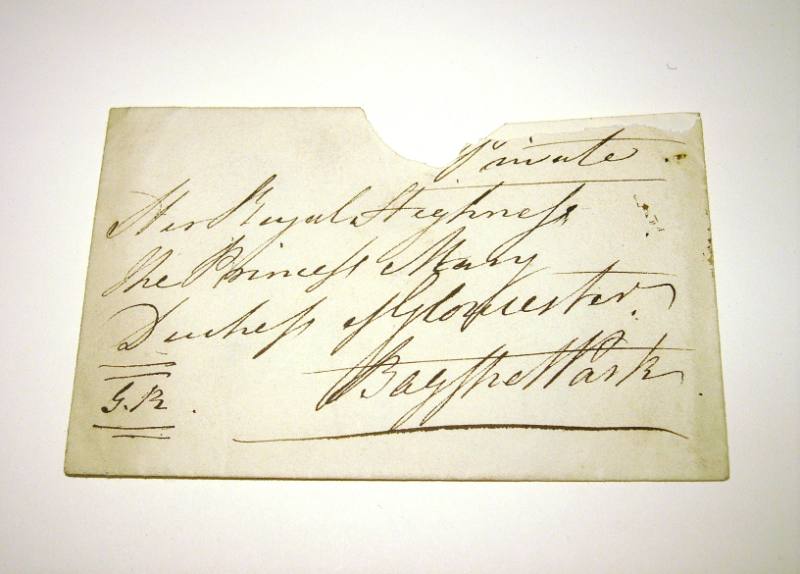 Private
Her Royal Highness
the Princess Mary
Duchess of Gloucester.
Bagshot Park
G.R.